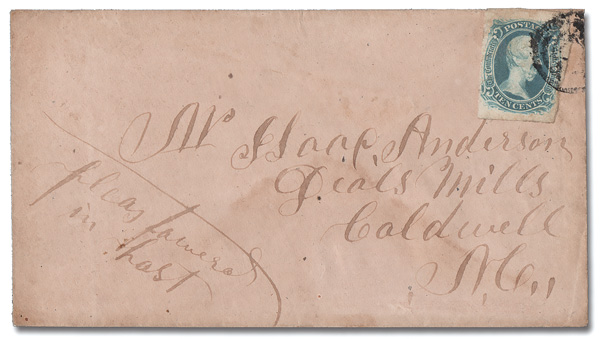 POSTAGE
TEN CENTS
Mr Isaac Anderson
Deals Mills
Caldwell
N.C.,
pleas forward
in hast